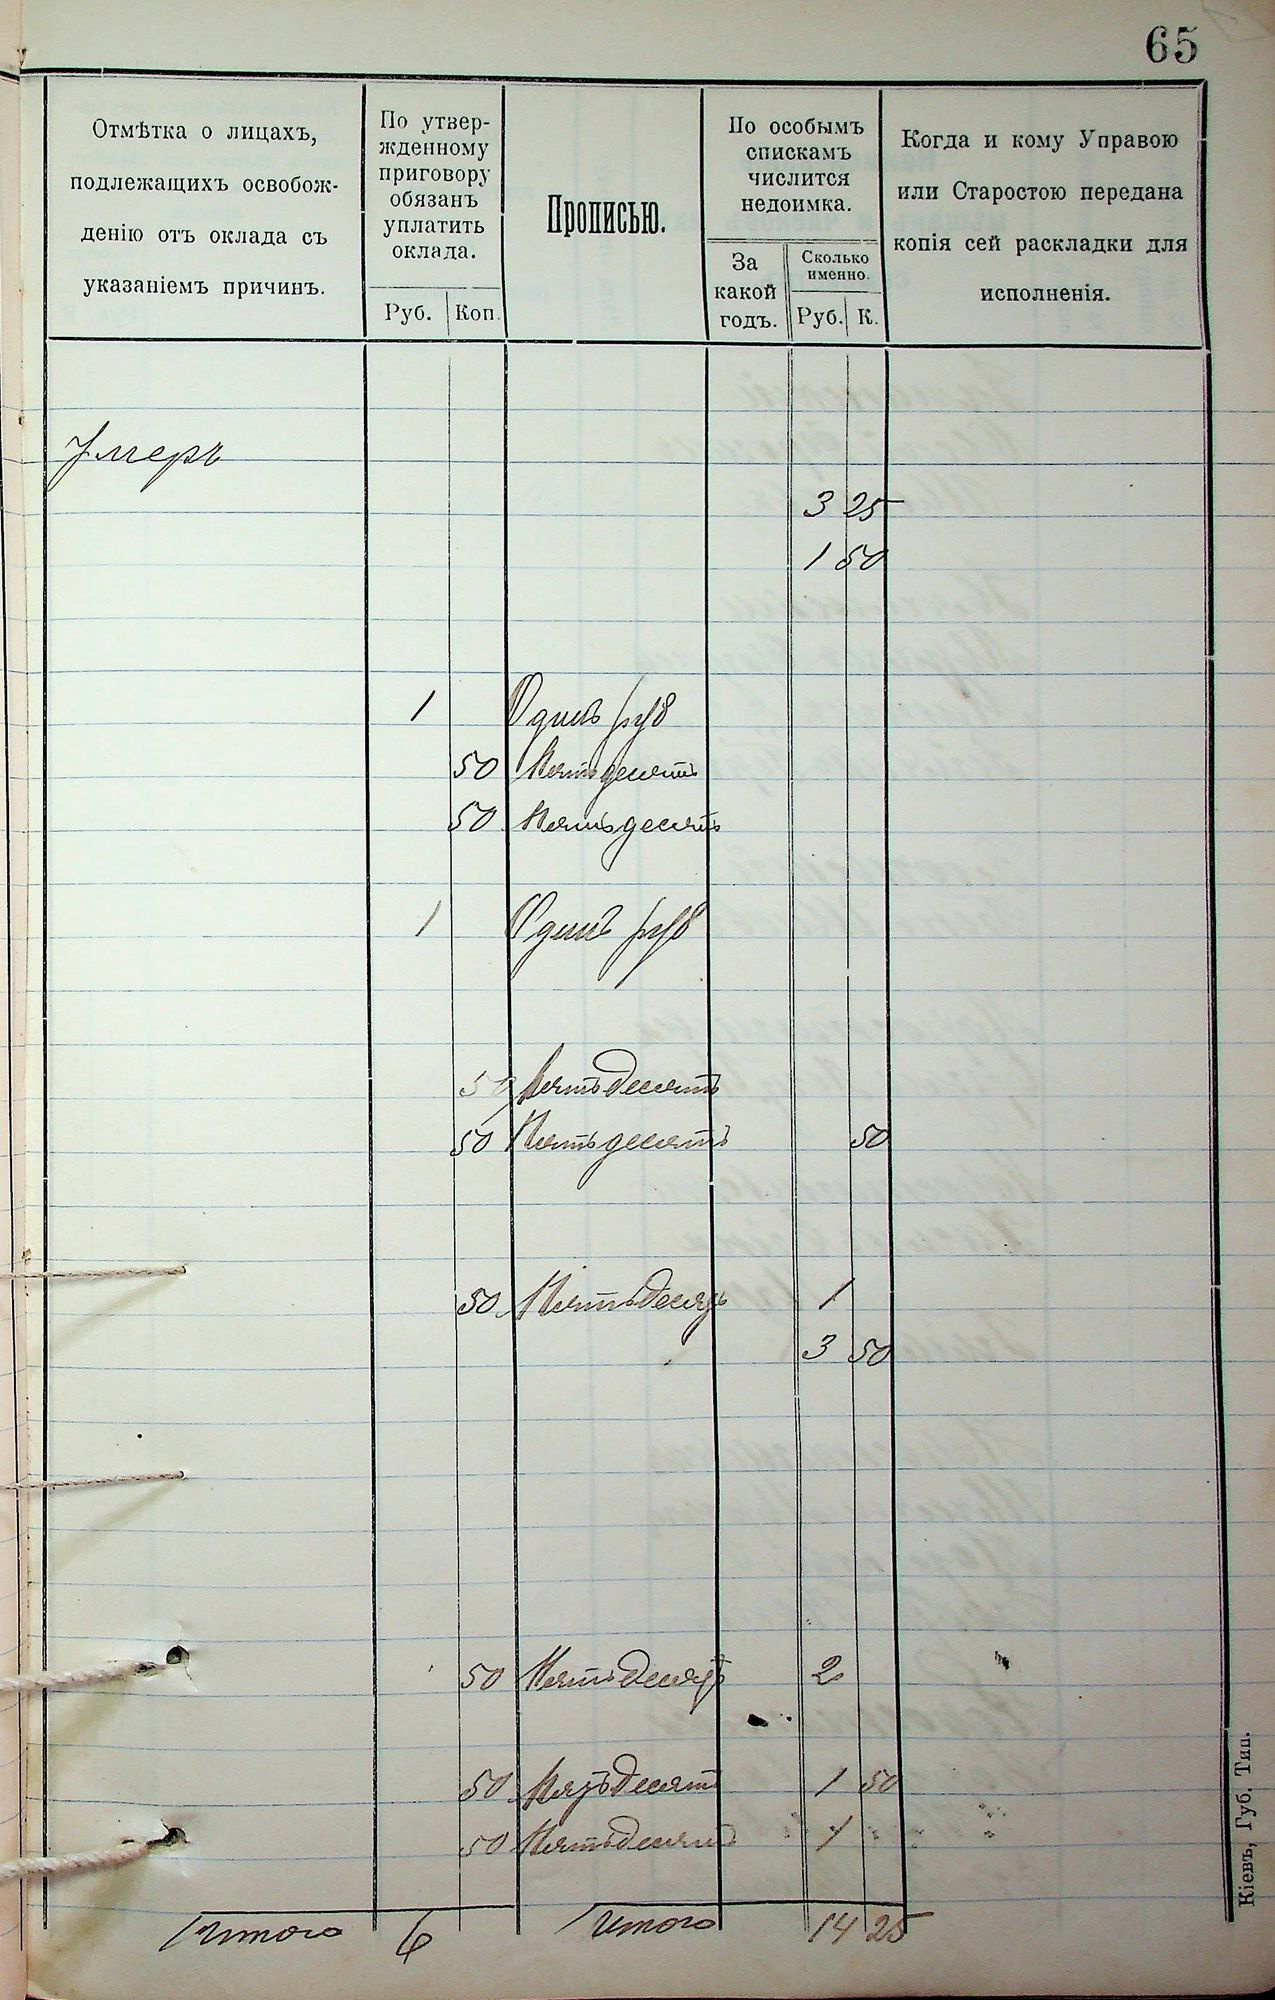 65
Отмѣтка о лицахъ,
подлежащихъ освобож-
денію отъ оклада съ
указаніемъ причинъ.
По утвер-
жденному
приговору
обязанъ
уплатить
оклада.
Руб. Коп.
Прописью.
По особымъ
спискамъ
числится
недоимка.
За
какой
годъ.
Сколько
именно.
Руб. К.
Когда и кому Управою
или Старостою передана
копія сей раскладки для
исполненія.
Умеръ
3 25
1 50
1 Одинъ руб
50 Пятьдесятъ
50 Пятьдесятъ
1 Одинъ руб
50 Пятьдесятъ
50 Пятьдесятъ 50
50 Пятьдесятъ 1
3 50
50 Пятьдесятъ 2
50 Пятьдесятъ 1 50
50 Пятьдесятъ 1
Итого 6 Итого 14 25
Кіевъ, Губ. Тип.